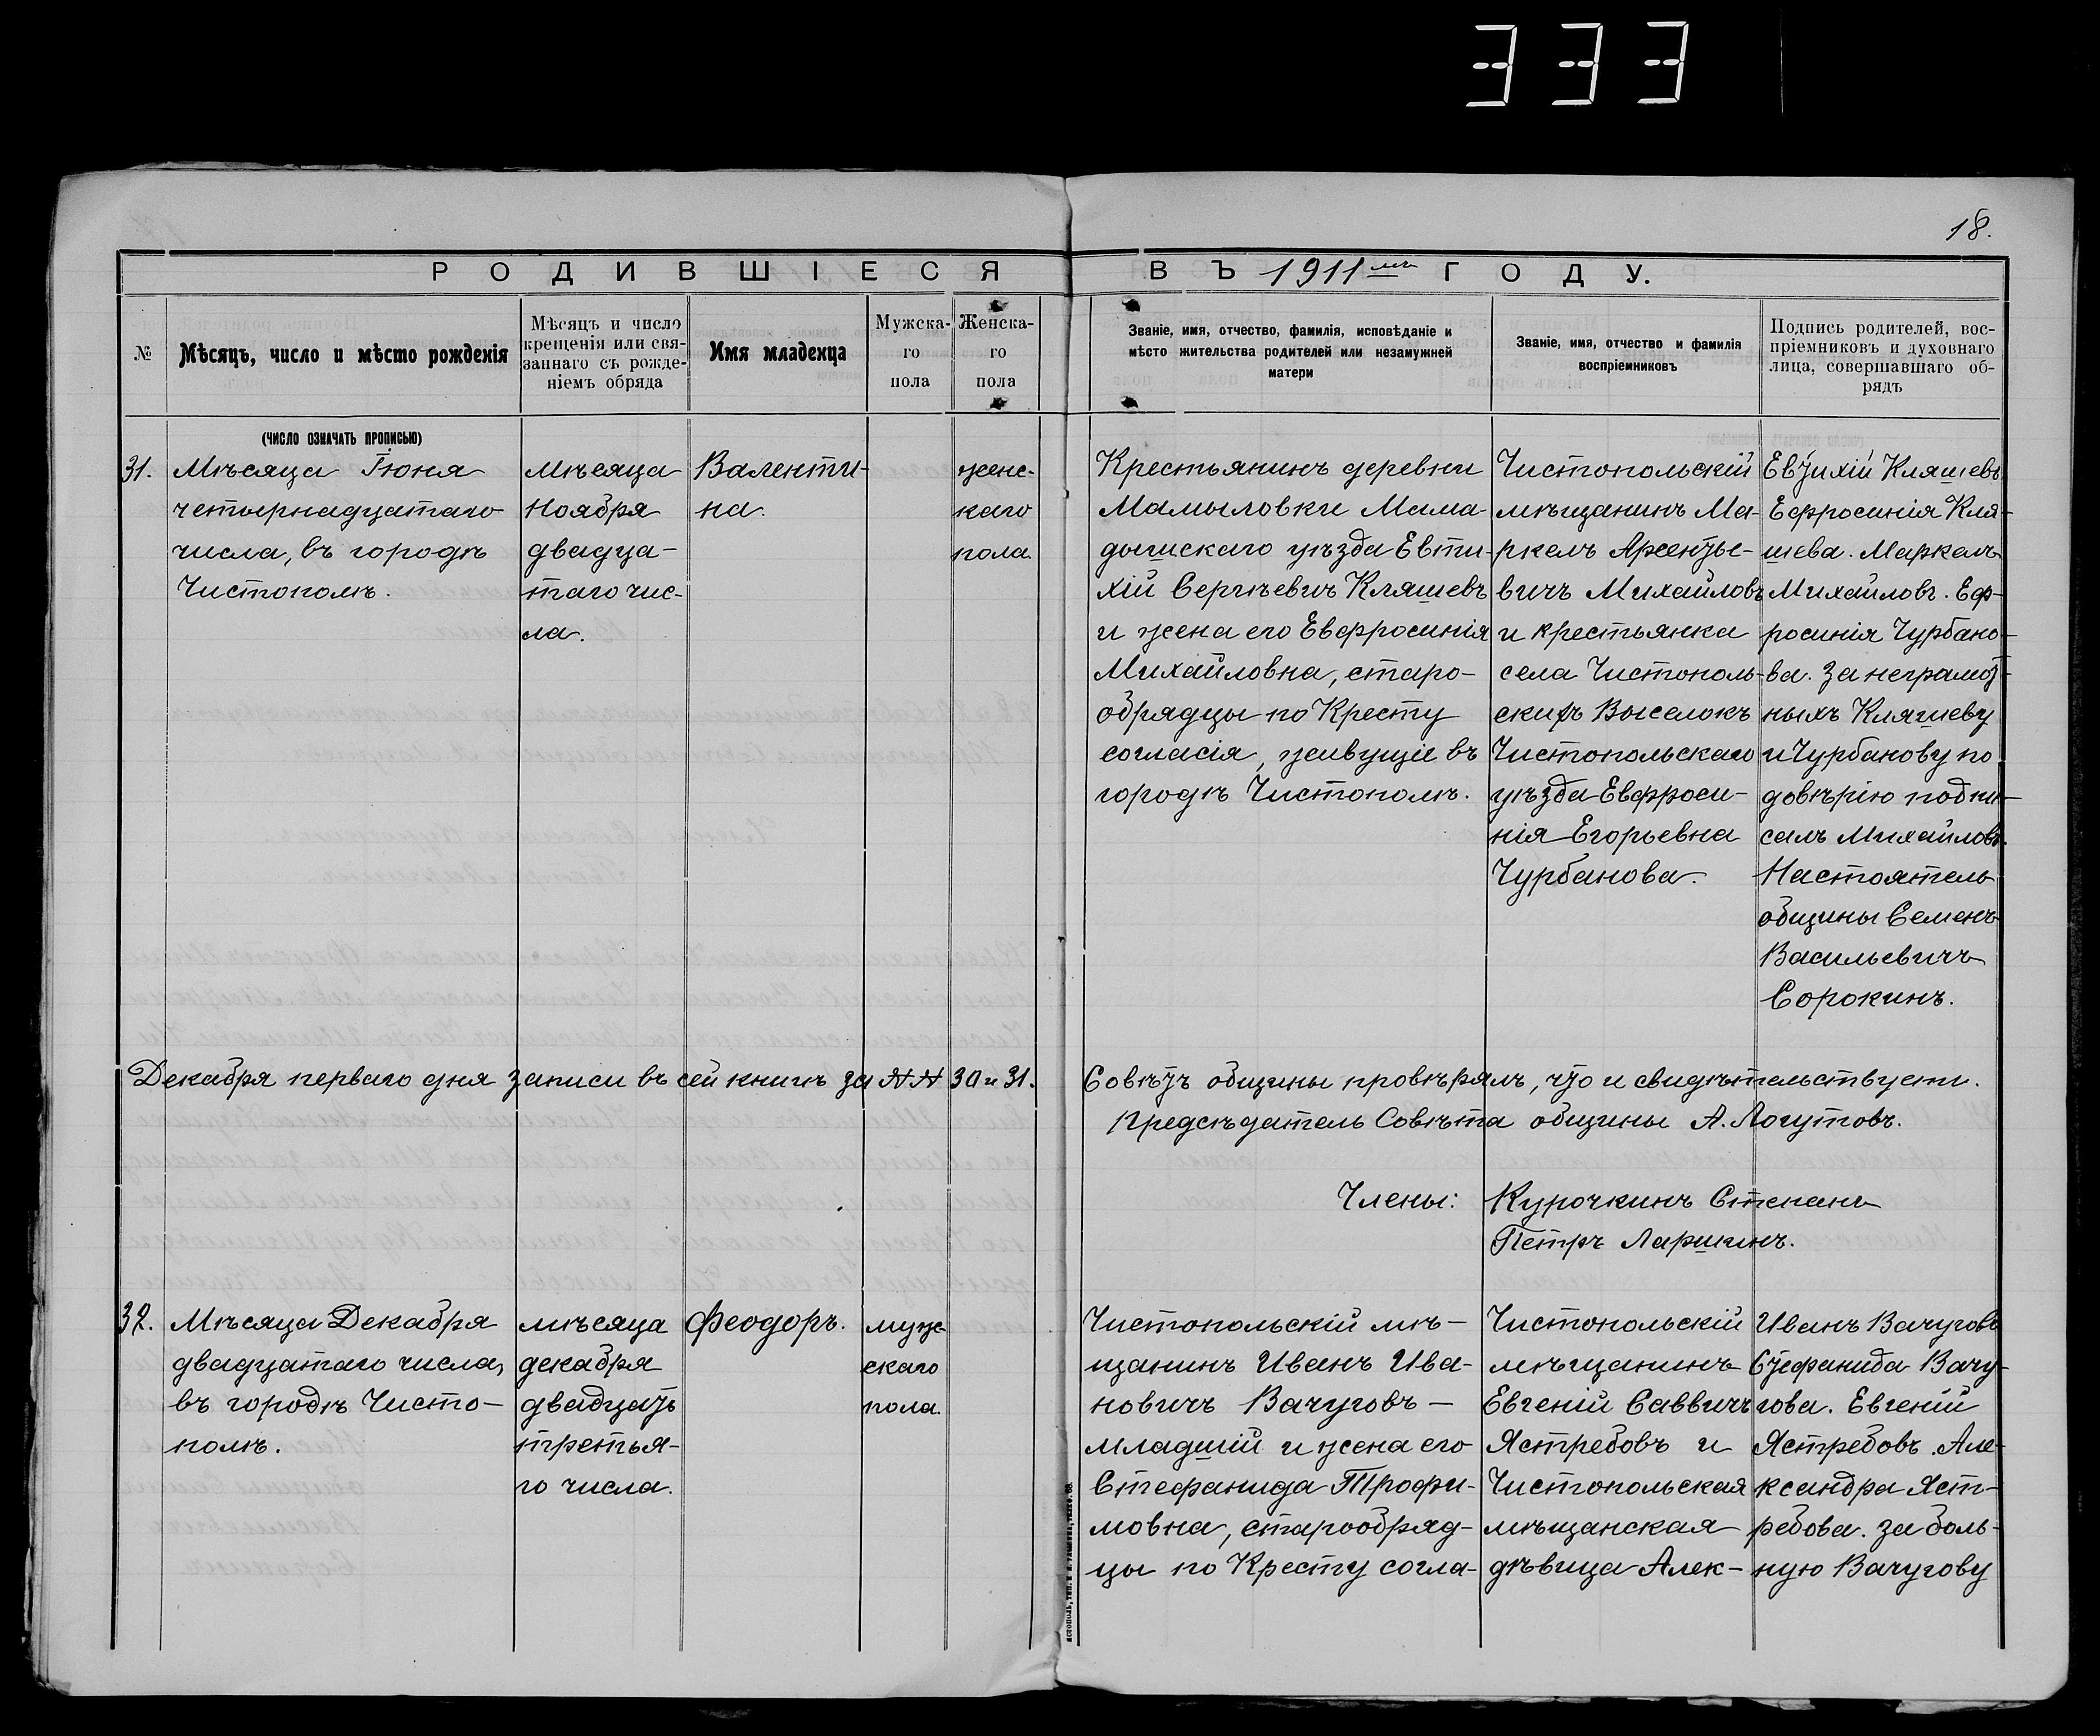 333
18.
РОДИВШІЕСЯ ВЪ 1911мъ ГОДУ.
№
Мѣсяцъ, число и мѣсто рожденія
Мѣсяцъ и число
крещенія или свя-
заннаго съ рожде-
ніемъ обряда
Имя младенца
Мужска-
го
пола
Женска-
го
пола
Званіе, имя, отчество, фамилія, исповѣданіе и
мѣсто жительства родителей или незамужней
матери
Званіе, имя, отчество и фамилія
воспріемниковъ
Подпись родителей, вос-
пріемниковъ и духовнаго
лица, совершавшаго об-
рядъ
(число означать прописью)
31.
Мѣсяца Іюня
четырнадцатаго
числа, въ городѣ
Чистополѣ.
мѣсяца
Ноября
двадца-
таго чис-
ла.
Валенти-
на.
женс-
каго
пола.
Крестьянинъ деревни
Мамыловки Мама-
дышскаго уѣзда Евти-
хій Сергѣевич Кляшевъ
и жена его Евфросинія
Михайловна, старо-
обрядцы по Кресту
согласія, живущіе въ
городѣ Чистополѣ.
Чистопольскій
мѣщанинъ Ма-
ркелъ Арсентье-
вичъ Михайловъ
и крестьянка
села Чистополь-
скихъ Выселокъ
Чистопольскаго
уѣзда Евфроси-
нія Егорьевна
Чурбанова.
Евтихій Кляшевъ.
Ефросинія Кля-
шева. Маркелъ
Михайловъ. Еф-
росинія Чурбано-
ва. За неграмот-
ныхъ Кляшеву
и Чурбанову по
довѣрію подпи-
салъ Михайловъ.
Настоятель
общины Семенъ
Васильевичъ
Сорокинъ.
Декабря перваго дня записи въ сей книгѣ за №№ 30 и 31. Совѣтъ общины провѣрялъ, что и свидѣтельствуетъ.
Предсѣдатель Совѣта общины А. Логутовъ.
Члены: Курочкинъ Степанъ
Петръ Ларшинъ.
32.
Мѣсяца Декабря
двадцатаго числа,
въ городѣ Чисто-
полѣ.
мѣсяца
декабря
двадцать
третья-
го числа.
Феодоръ.
муже-
скаго
пола.
Чистопольскій мѣ-
щанинъ Иванъ Ива-
новичъ Вачуговъ -
младшій и жена его
Стефанида Трофи-
мовна, старообряд-
цы по Кресту согла-
Чистопольскій
мѣщанинъ
Евгеній Саввичъ
Ястребовъ и
Чистопольская
мѣщанская
дѣвица Алек-
Иванъ Вачуговъ
Стефанида Вачу-
гова. Евгеній
Ястребовъ. Але-
ксандра Яст-
ребова. За боль-
ную Вачугову